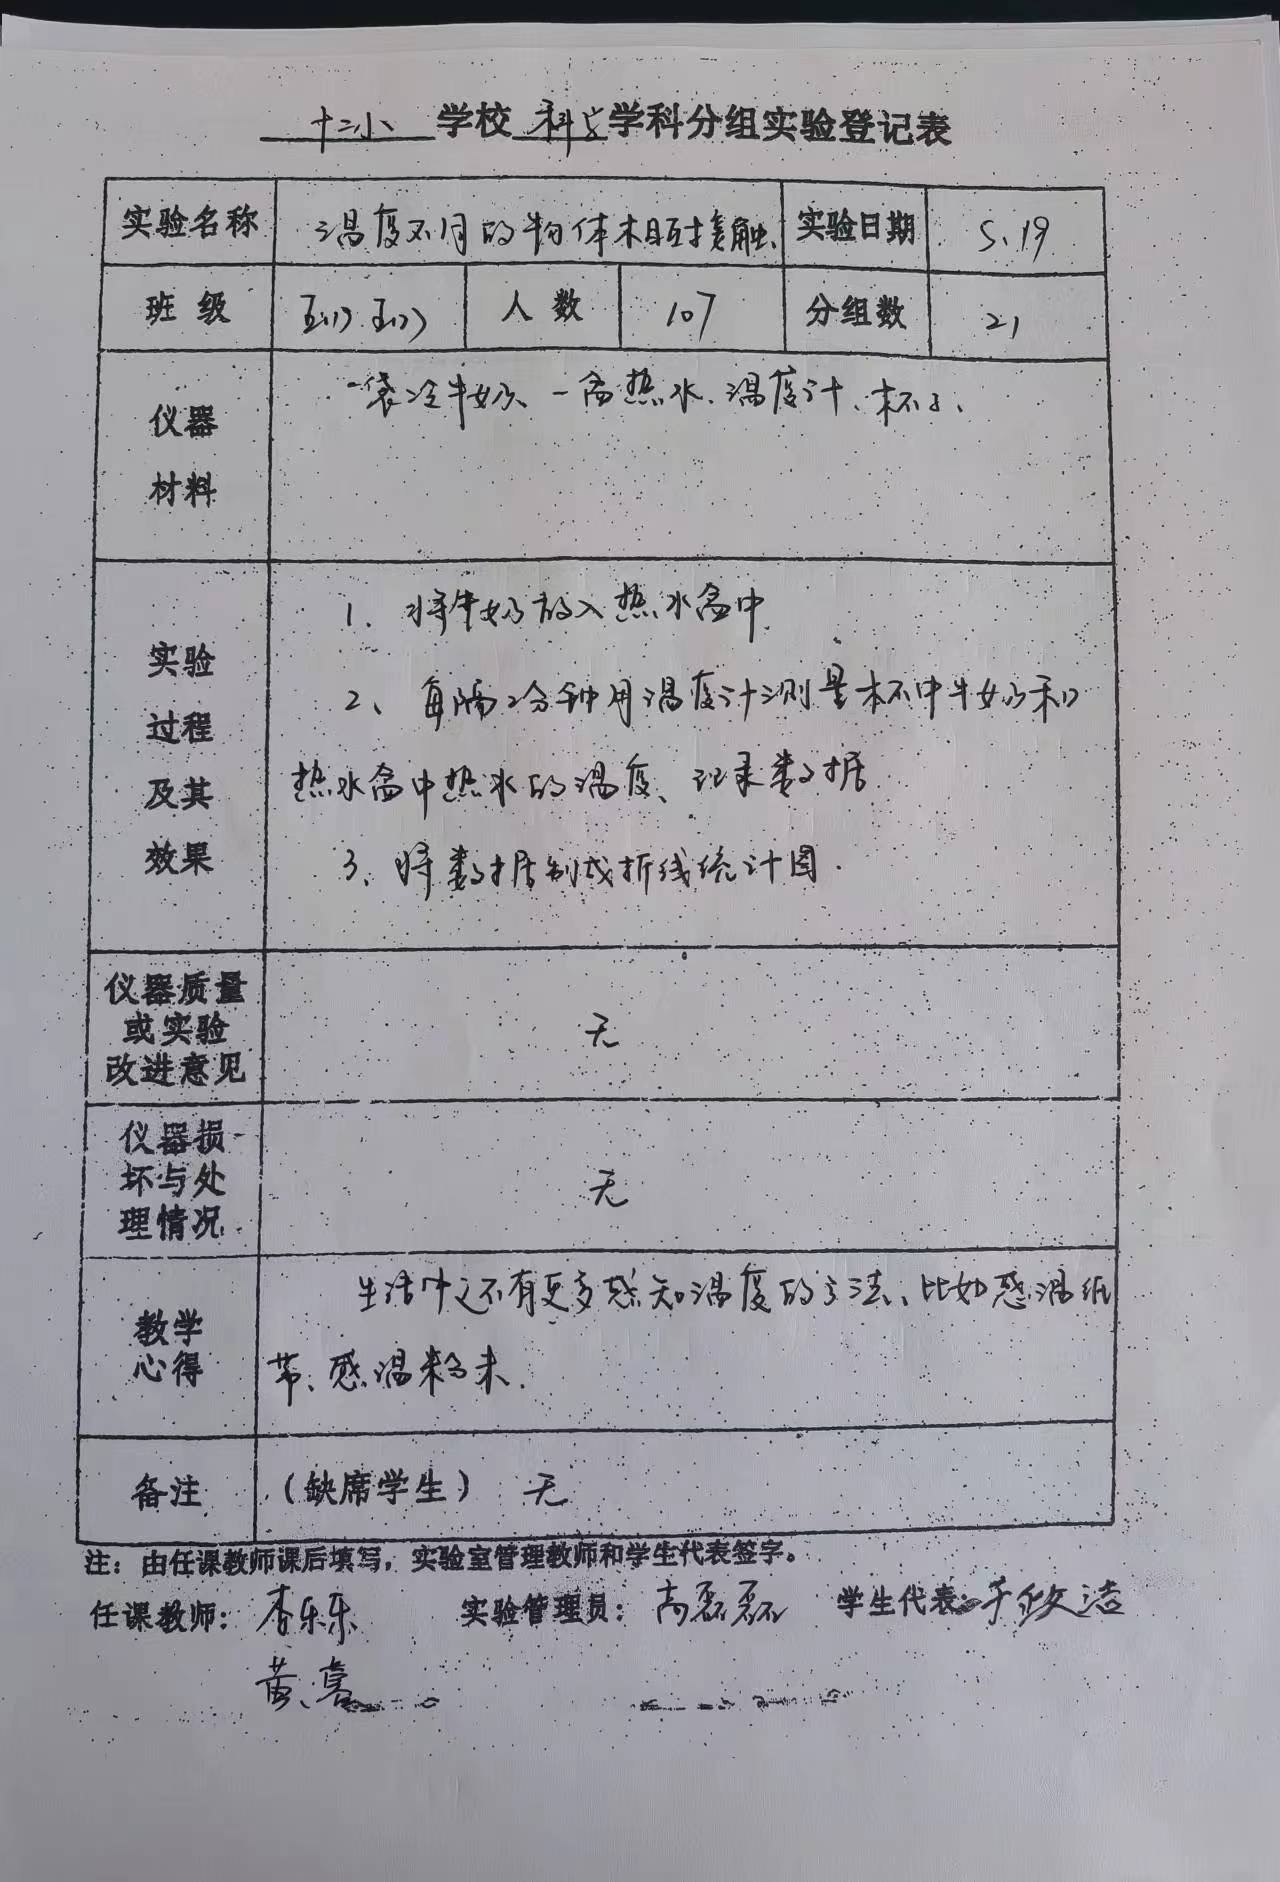 十二小 学校 科学 学科分组实验登记表
实验名称 温度不同的物体相互接触 实验日期 5.19
班级 五(1) 五(2) 人数 107 分组数 21
仪器
材料
一袋冷牛奶、一盒热水、温度计、杯子、
实验
过程
及其
效果
1、将牛奶放入热水盒中
2、每隔2分钟用温度计测量杯中牛奶和
热水盒中热水的温度、记录数据
3、将数据制成折线统计图.
仪器质量
或实验
改进意见
无
仪器损
坏与处
理情况
无
教学
心得
生活中还有更多感知温度的方法、比如感温纸
带、感温粉末.
备注 (缺席学生) 无
注：由任课教师课后填写，实验室管理教师和学生代表签字。
任课教师： 李乐乐 实验管理员： 高磊磊 学生代表：
黄亮